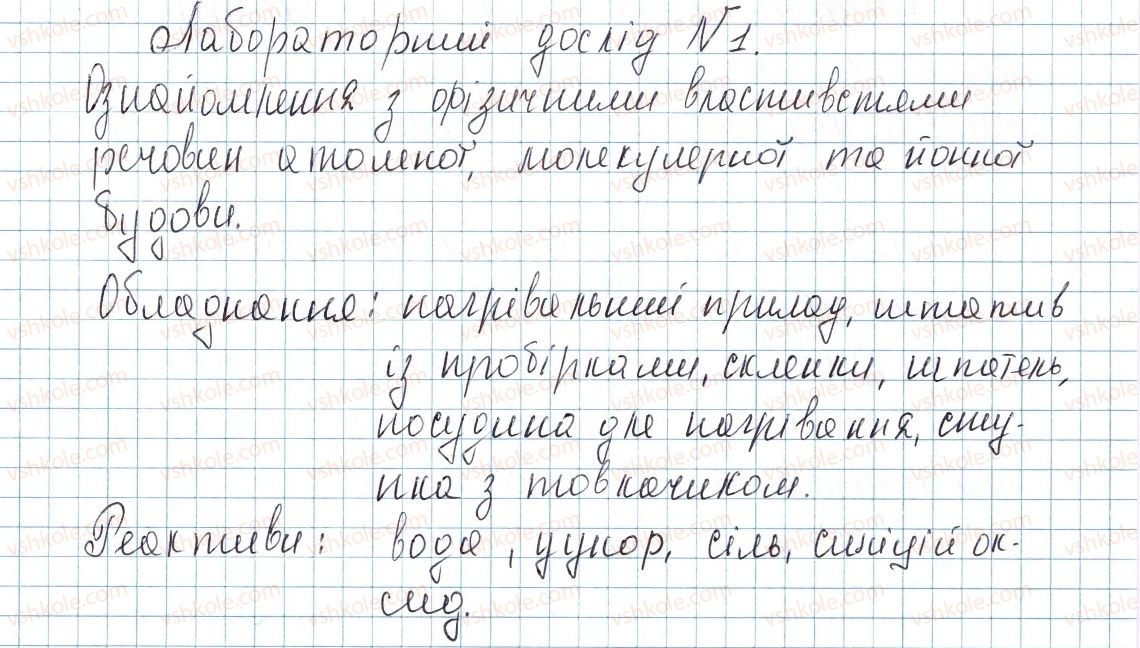 Лабораторний дослід №1.
Ознайомлення з фізичними властивостями
речовин атомної, молекулярної та йонної
будови.
Обладнання: нагрівальний прилад, штатив
із пробірками, склянки, шпатель,
посудина для нагрівання, сту-
пка з товкачиком.
Реактиви: вода, цукор, сіль, силіцій ок-
сид.